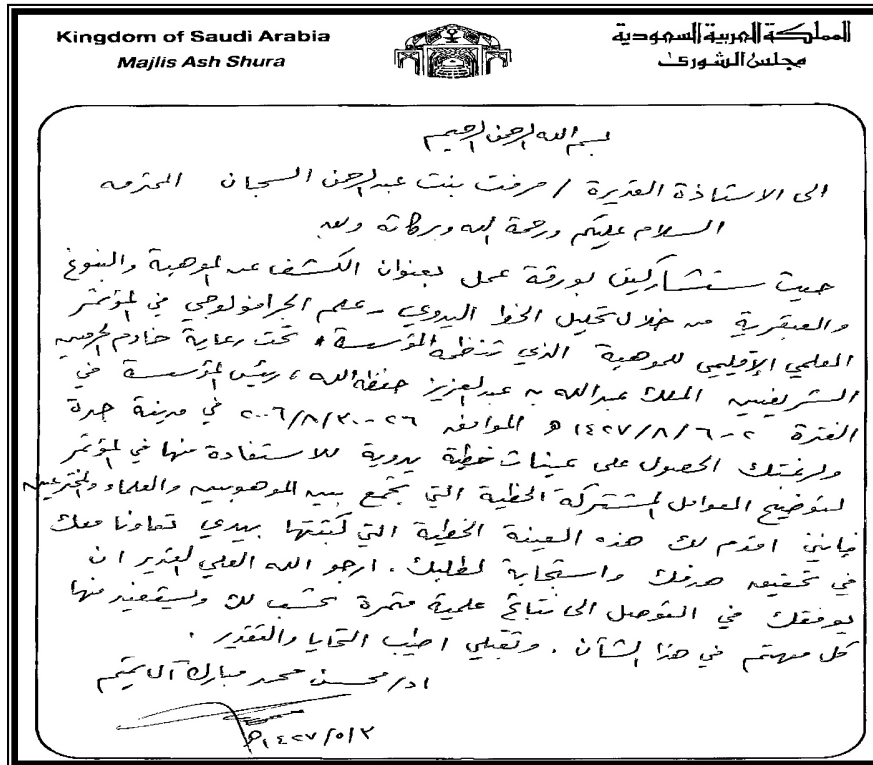 Kingdom of Saudi Arabia
Majlis Ash Shura
المملكة العربية السعودية
مجلس الشورى
بسم الله الرحمن الرحيم
الى الاستاذة القديرة / مرفت بنت عبدالرحمن السجان المحترمه
السلام عليكم ورحمة الله وبركاته وبعد
حيث ستشاركين بورقة عمل بعنوان الكشف عن الموهبة والنبوغ
والعبقرية من خلال تحليل الخط اليدوي - علم الجرافولوجي في المؤتمر
العلمي الإقليمي للموهبة الذي تنظمه المؤسسة تحت رعاية خادم الحرمين
الشريفين الملك عبدالله بن عبدالعزيز حفظه الله، رئيس المؤسسة في
الفترة ٢-٦/٨/١٤٢٧ هـ الموافق ٢٦-٣٠/٨/٢٠٠٦ في مدينة جدة
ولرغبتك الحصول على عينات خطية يدوية للاستفادة منها في المؤتمر
لتوضيح العوامل المشتركة الخطية التي تجمع بين الموهوبين والعلماء والمخترعين
فإنني اقدم لك هذه العينة الخطية التي كتبتها بيدي تعاونا معك
في تحقيق هدفك واستجابة لطلبك. ارجو الله العلي القدير ان
يوفقك في التوصل الى نتائج علمية مثمرة تحسب لك ويستفيد منها
كل مهتم في هذا الشأن. وتقبلي اطيب التحايا والتقدير.
اد/ محسن محمد مبارك آل
١٤٢٧/٥/٣هـ